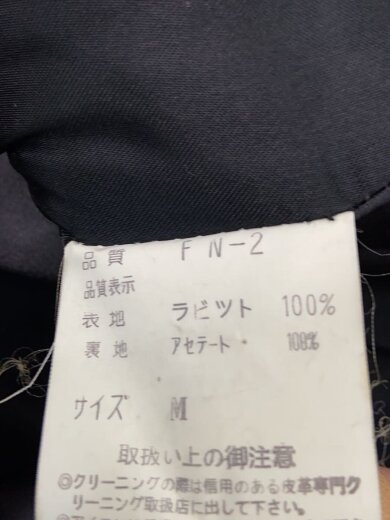 品質 FN-2
品質表示
表地 ラビツト 100%
裏地 アセテート 100%
サイズ M
取扱い上の御注意
◎クリーニングの際は信用のある皮革専門ク
リーニング取扱店に出して下さい。